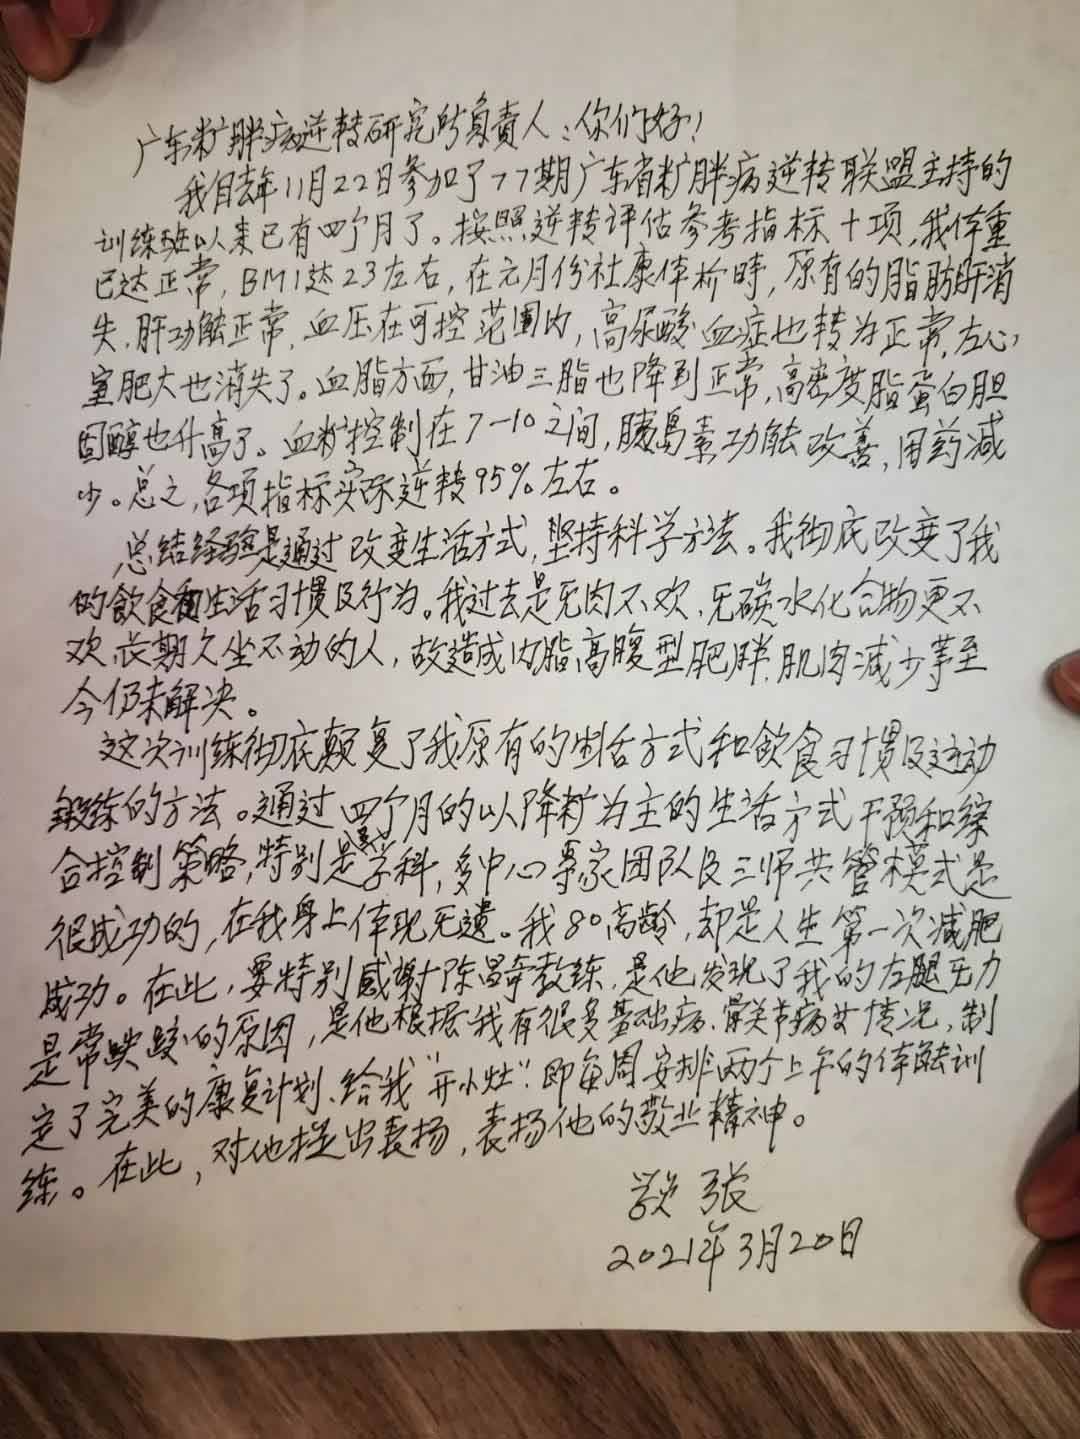 广东糖胖病逆转研究所负责人：你们好！
我自去年11月22日参加了77期广东省糖胖病逆转联盟主持的
训练班以来已有四个月了。按照逆转评估参考指标十项，我体重
已达正常，BMI达23左右，在元月份社康体检时，原有的脂肪肝消
失，肝功能正常，血压在可控范围内，高尿酸血症也转为正常，左心
室肥大也消失了。血脂方面，甘油三脂也降到正常，高密度脂蛋白胆
固醇也升高了。血糖控制在7-10之间，胰岛素功能改善，用药减
少。总之，各项指标实际逆转95%左右。
总结经验是通过改变生活方式，坚持科学方法。我彻底改变了我
的飲食和生活习惯及行为。我过去是无肉不欢，无碳水化合物更不
欢，长期久坐不动的人，故造成内脂高腹型肥胖，肌肉减少等至
今仍未解决。
这次训练彻底颠复了我原有的生活方式和飲食习惯及运动
锻练的方法。通过四个月的以降糖为主的生活方式干预和综
合控制策略，特别是学科，多中心专家团队及三师共管模式是
很成功的，在我身上体现无遗。我80高龄，却是人生第一次减肥
成功。在此，要特别感谢陈昌奇教练，是他发现了我的左腿无力
是常跌跤的原因，是他根据我有很多基础病、骨关节病女情况，制
定了完美的康复计划、给我“开小灶”：即每周安排两个上午的体能训
练。在此，对他提出表扬，表扬他的敬业精神。
张
2021年3月20日